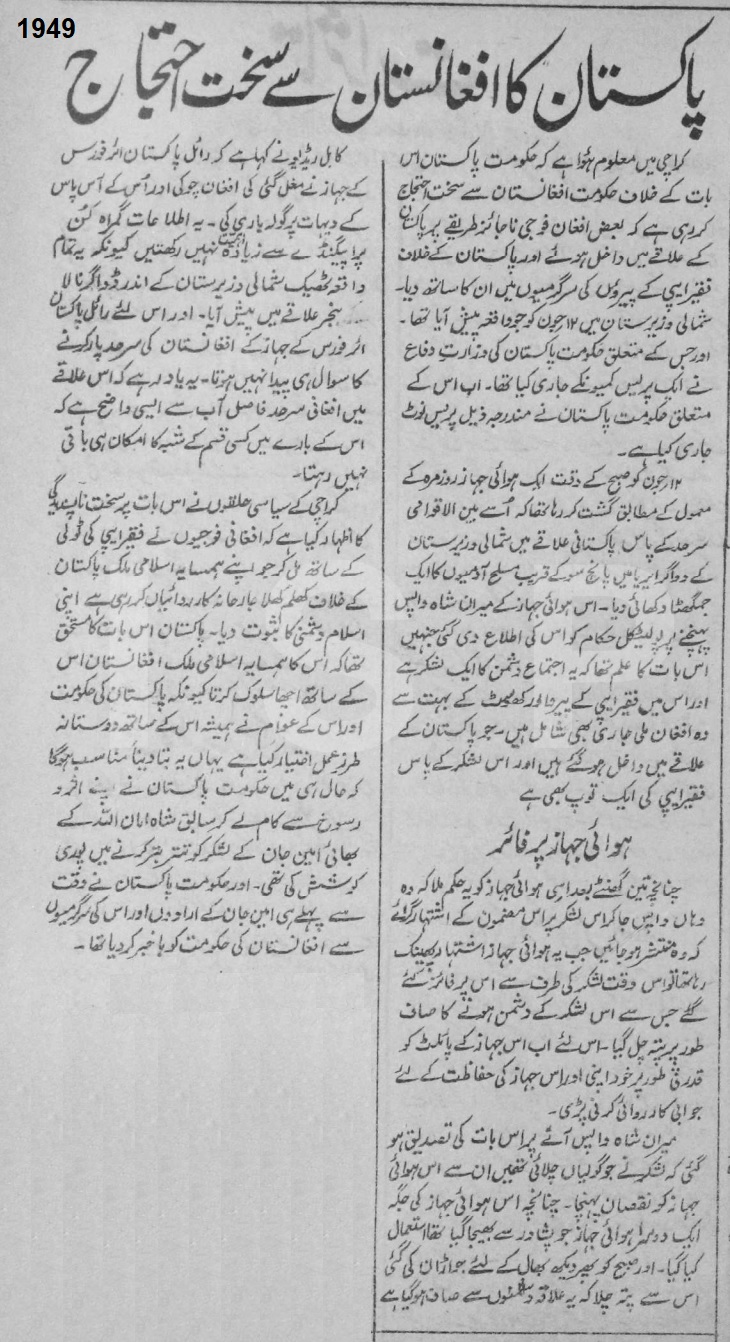 1949
پاکستان کا افغانستان سے سخت احتجاج
کراچی میں معلوم ہوا ہے کہ حکومت پاکستان اس
بات کے خلاف حکومت افغانستان سے سخت احتجاج
کر رہی ہے کہ بعض افغان فوجی ناجائز طریقے پر پاکستان
کے علاقے میں داخل ہوئے اور پاکستان کے خلاف
فقیر ایپی کے پیروؤں کی سرگرمیوں میں ان کا ساتھ دیا۔
شمالی وزیرستان میں ۱۲ جون کو جو واقعہ پیش آیا تھا۔
اور جس کے متعلق حکومت پاکستان کی وزارت دفاع
نے ایک پریس کمیونکے جاری کیا تھا۔ اب اس کے
متعلق حکومت پاکستان نے مندرجہ ذیل پریس نوٹ
جاری کیا ہے۔
۱۲ جون کو صبح کے وقت ایک ہوائی جہاز روزمرہ کے
معمول کے مطابق گشت کر رہا تھا کہ اُسے بین الاقوامی
سرحد کے پاس پاکستانی علاقے میں شمالی وزیرستان
کے دواگر ایریا میں پانچ سو کے قریب مسلح آدمیوں کا ایک
جمگھٹا دکھائی دیا۔ اس ہوائی جہاز کے میران شاہ واپس
پہنچنے پر پولیٹیکل حکام کو اس کی اطلاع دی گئی جنہیں
اس بات کا علم تھا کہ یہ اجتماع دشمن کا ایک لشکر ہے
اور اس میں فقیر ایپی کے پیرو اور کھوسٹ کے بہت سے
وہ افغان ملی جاری بھی شامل ہیں۔ جو پاکستان کے
علاقے میں داخل ہو گئے ہیں اور اس لشکر کے پاس
فقیر ایپی کی ایک توپ بھی ہے
ہوائی جہاز پر فائر
چنانچہ تین گھنٹے بعد اسی ہوائی جہاز کو یہ حکم ملا کہ وہ
وہاں واپس جا کر اس لشکر پر اس مضمون کے اشتہار گرائے
کہ وہ منتشر ہو جائیں جب یہ ہوائی جہاز اشتہار پھینک
رہا تھا تو اس وقت لشکر کی طرف سے اس پر فائر کئے
گئے جس سے اس لشکر کے دشمن ہونے کا صاف
طور پر پتہ چل گیا۔ اس لئے اب اس جہاز کے پائلٹ کو
قدرتی طور پر خود اپنی اور اس جہاز کی حفاظت کے لئے
جوابی کارروائی کرنی پڑی۔
میران شاہ واپس آنے پر اس بات کی تصدیق ہو
گئی کہ لشکر نے جو گولیاں چلائی تھیں ان سے اس ہوائی
جہاز کو نقصان پہنچا۔ چنانچہ اس ہوائی جہاز کی جگہ
ایک دوسرا ہوائی جہاز جو پشاور سے بھیجا گیا تھا استعمال
کیا گیا۔ اور صبح کو پھر دیکھ بھال کے لئے جو اڑان کی گئی
اس سے پتہ چلا کہ یہ علاقہ دشمنوں سے صاف ہو گیا ہے
کابل ریڈیو نے کہا ہے کہ رائل پاکستان ائر فورس
کے جہاز نے مغل گئی کی افغان چوکی اور اُس کے آس پاس
کے دیہات پر گولہ باری کی۔ یہ اطلاعات گمراہ کن
پراپیگنڈے سے زیادہ اہمیت نہیں رکھتیں کیونکہ یہ تمام
واقعہ ٹھیک شمالی وزیرستان کے اندر ڈواگر نالا
بنجر علاقے میں پیش آیا۔ اور اس لئے رائل پاکستان
ائر فورس کے جہاز کے افغانستان کی سرحد پار کرنے
کا سوال ہی پیدا نہیں ہوتا۔ یہ یاد رہے کہ اس علاقے
میں افغانی سرحد فاصل آب سے ایسی واضح ہے کہ
اس کے بارے میں کسی قسم کے شبہ کا امکان ہی باقی
نہیں رہتا۔
کراچی کے سیاسی حلقوں نے اس بات پر سخت ناپسندیدگی
کا اظہار کیا ہے کہ افغانی فوجیوں نے فقیر ایپی کی ٹولی
کے ساتھ مل کر جو اپنے ہمسایہ اسلامی ملک پاکستان
کے خلاف کھلم کھلا جارحانہ کارروائیاں کر رہی ہے اپنی
اسلام دشمنی کا ثبوت دیا۔ پاکستان اس بات کا مستحق
تھا کہ اس کا ہمسایہ اسلامی ملک افغانستان اس
کے ساتھ اچھا سلوک کرتا کیونکہ پاکستان کی حکومت
اور اس کے عوام نے ہمیشہ اس کے ساتھ دوستانہ
طرز عمل اختیار کیا ہے یہاں یہ بتا دینا مناسب ہوگا
کہ حال ہی میں حکومت پاکستان نے اپنے اثر و
رسوخ سے کام لے کر سابق شاہ امان اللہ کے
بھائی امین جان کے لشکر کو تتر بتر کرنے میں پوری
کوشش کی تھی۔ اور حکومت پاکستان نے وقت
سے پہلے ہی امین جان کے ارادوں اور اس کی سرگرمیوں
سے افغانستان کی حکومت کو باخبر کر دیا تھا۔